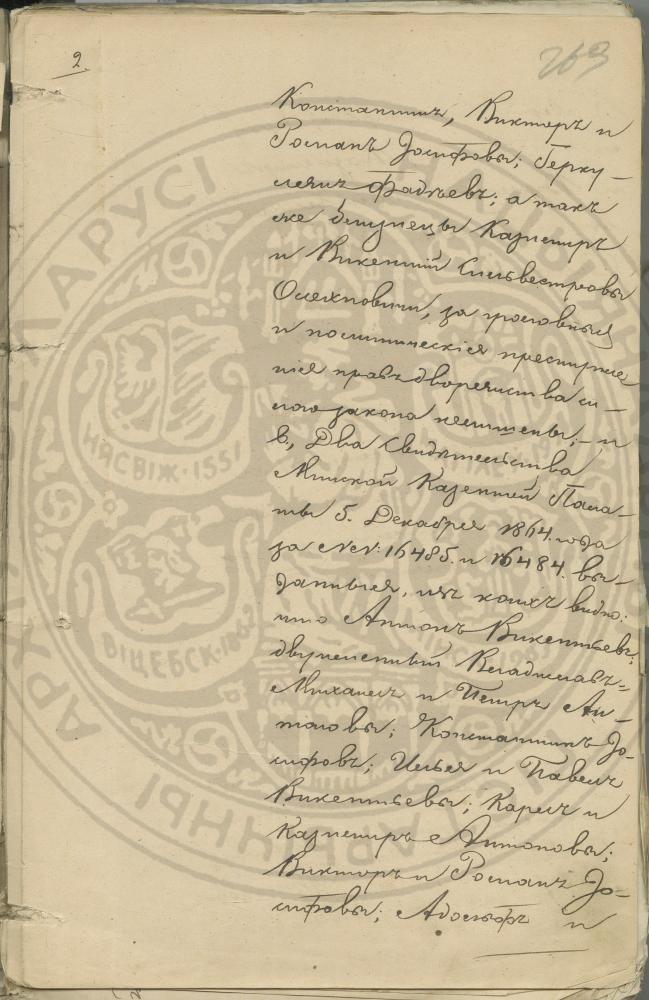 2.
263
Константинъ, Викторъ и
Романъ Іосифовы; Герку-
лянъ Фадѣевъ; а так-
же близнецы Казимиръ
и Викентій Сильвестровы
Олехновичи, за уголовныя
и политическія преступле-
нія правъ дворянства си-
лою закона не лишены; - и
в., Два Свидѣтельства
Минской Казенной Пала-
ты 5. Декабря 1864. года
за №№: 16485. и 16484. вы-
данныя, изъ коихъ видно:
что Антонъ Викентьевъ;
двуименный Владиславъ-
Михаилъ и Петръ Ан-
тоновы; Константинъ Іо-
сифовъ; Илья и Павелъ
Викентьевы; Карлъ и
Казимиръ Антоновы;
Викторъ и Романъ Іо-
сифовы; Адольфъ и
НЯСВІЖ·1551
ВІЦЕБСК